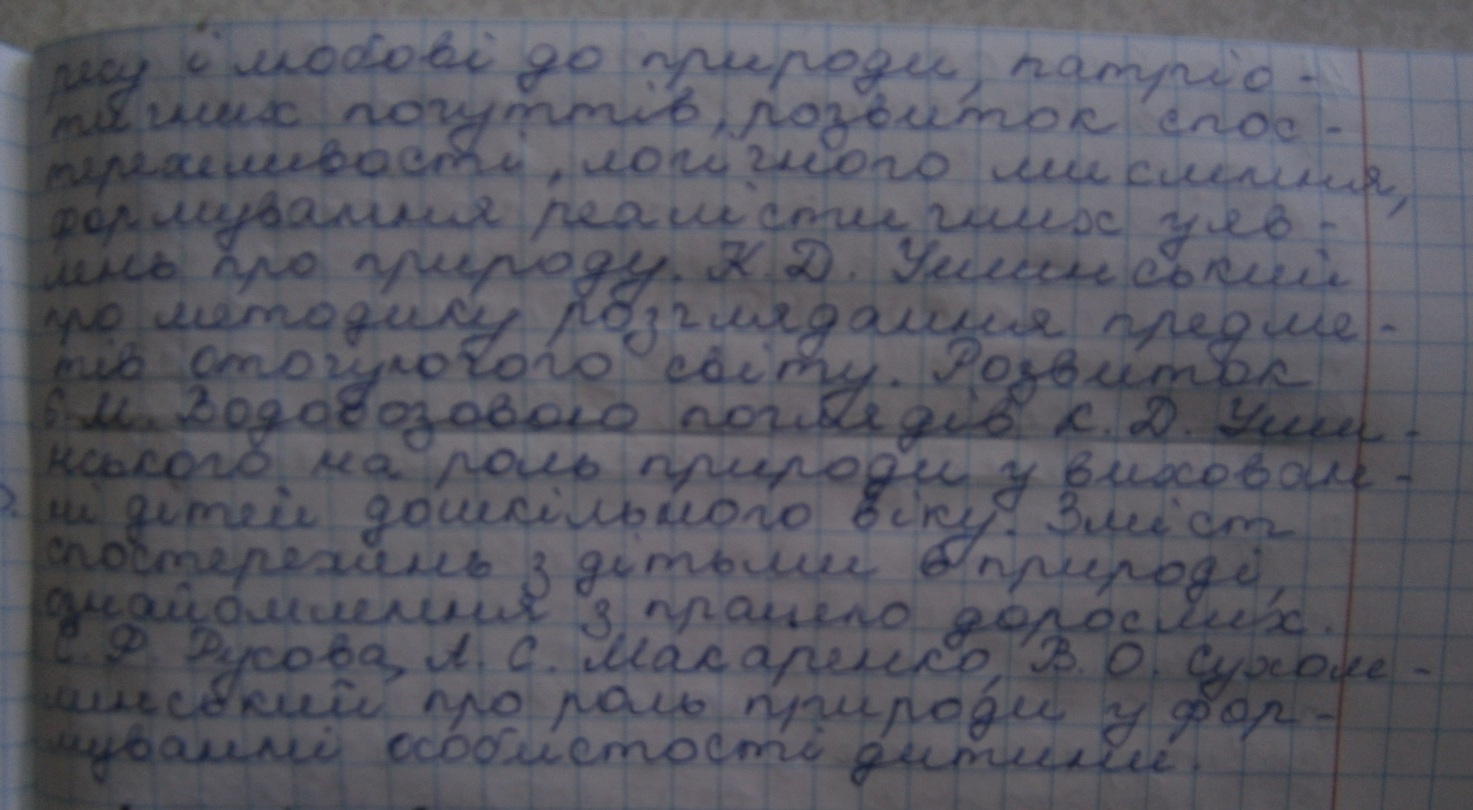 ресу і любові до природи, патріо-
тичних почуттів, розвиток спос-
тережливості, логічного мислення,
формування реалістичних уяв-
лень про природу. К. Д. Ушинський
про методику розглядання предме-
тів оточуючого світу. Розвиток
Є. М. Водовозовою поглядів К. Д. Уши-
нського на роль природи у вихован-
ні дітей дошкільного віку. Зміст
спостережень з дітьми в природі,
ознайомлення з працею дорослих.
С. Ф Русова, А. С. Макаренко, В. О. Сухомли-
нський про роль природи у фор-
муванні особистості дитини.